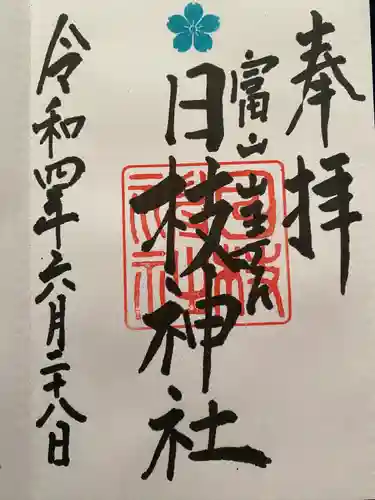 奉拝
富山山王宮
日枝神社
令和四年六月二十八日